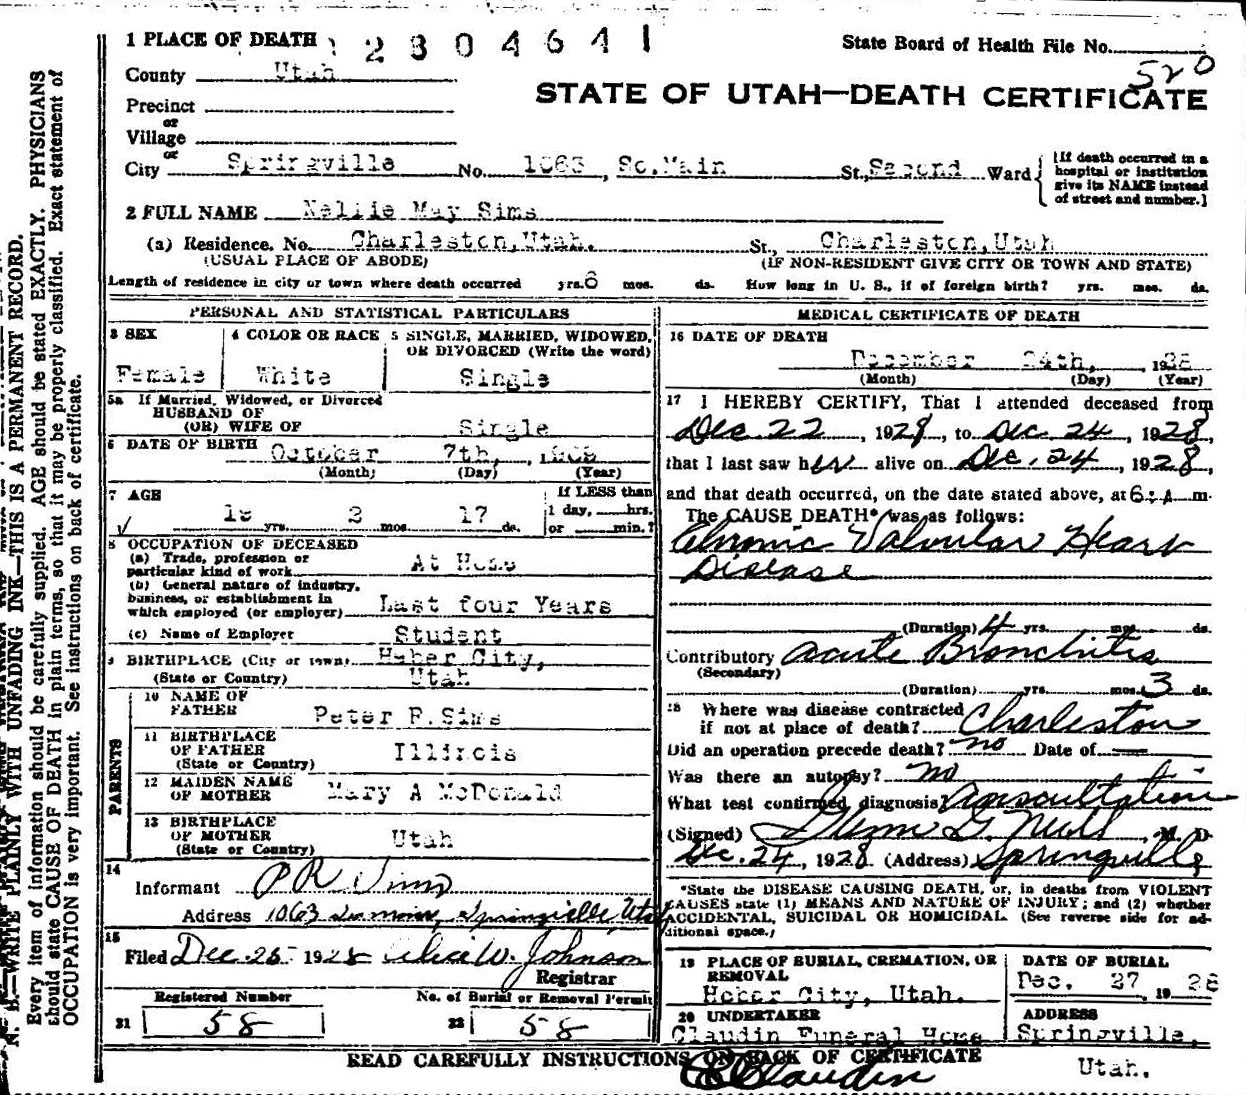 1 PLACE OF DEATH 2304641 State Board of Health File No.
520
County Utah
STATE OF UTAH—DEATH CERTIFICATE
Precinct
or
Village
or
City Springville No. 1063, So.Main St., Second Ward
[If death occurred in a
hospital or institution
give its NAME instead
of street and number.]
2 FULL NAME Nellie May Sims
(a) Residence. No. Charleston,Utah. St., Charleston,Utah
(USUAL PLACE OF ABODE) (IF NON-RESIDENT GIVE CITY OR TOWN AND STATE)
Length of residence in city or town where death occurred yrs.6 mos. ds. How long in U. S., if of foreign birth? yrs. mos. ds.
PERSONAL AND STATISTICAL PARTICULARS
3 SEX 4 COLOR OR RACE 5 SINGLE, MARRIED, WIDOWED,
OR DIVORCED (Write the word)
Female White Single
5a If Married, Widowed, or Divorced
HUSBAND OF
(OR) WIFE OF Single
6 DATE OF BIRTH October 7th,
(Month) (Day) (Year)
7 AGE If LESS than
1 day, hrs.
or min.?
yrs. 2 mos. 17 ds.
8 OCCUPATION OF DECEASED
(a) Trade, profession or
particular kind of work At Home
(b) General nature of industry,
business, or establishment in
which employed (or employer) Last four Years
(c) Name of Employer Student
9 BIRTHPLACE (City or town) Heber City,
(State or Country) Utah
PARENTS
10 NAME OF
FATHER Peter R.Sims
11 BIRTHPLACE
OF FATHER Illinois
(State or Country)
12 MAIDEN NAME
OF MOTHER Mary A McDonald
13 BIRTHPLACE
OF MOTHER Utah
(State or Country)
14
Informant P R Sims
Address 1063 So main, Springville, Utah
15
Filed Dec. 25 1928 Alice W. Johnson
Registrar
Registered Number No. of Burial or Removal Permit
21 58 22 58
MEDICAL CERTIFICATE OF DEATH
16 DATE OF DEATH
December 24th, 1928
(Month) (Day) (Year)
17 I HEREBY CERTIFY, That I attended deceased from
Dec 22, 1928, to Dec. 24, 1928,
that I last saw her alive on Dec. 24, 1928,
and that death occurred, on the date stated above, at 6: A m.
The CAUSE DEATH* was as follows:
Chronic Valvular Heart
Disease
(Duration) 4 yrs. mos. ds.
Contributory acute Bronchitis
(Secondary)
(Duration) yrs. mos. 3 ds.
18 Where was disease contracted
if not at place of death? Charleston
Did an operation precede death? no Date of
Was there an autopsy? no
What test confirmed diagnosis? Auscultation
(Signed) , M. D.
Dec. 24, 1928 (Address) Springville
*State the DISEASE CAUSING DEATH, or, in deaths from VIOLENT
CAUSES state (1) MEANS AND NATURE OF INJURY; and (2) whether
ACCIDENTAL, SUICIDAL OR HOMICIDAL. (See reverse side for ad-
ditional space.)
19 PLACE OF BURIAL, CREMATION, OR
REMOVAL
Heber City, Utah.
DATE OF BURIAL
Dec. 27, 1928
20 UNDERTAKER
Claudin Funeral Home
ADDRESS
Springville,
Utah.
READ CAREFULLY INSTRUCTIONS ON BACK OF CERTIFICATE
Claudin
N. B.—WRITE PLAINLY WITH UNFADING INK—THIS IS A PERMANENT RECORD.
Every item of information should be carefully supplied. AGE should be stated EXACTLY. PHYSICIANS
should state CAUSE OF DEATH in plain terms, so that it may be properly classified. Exact statement of
OCCUPATION is very important. See instructions on back of certificate.